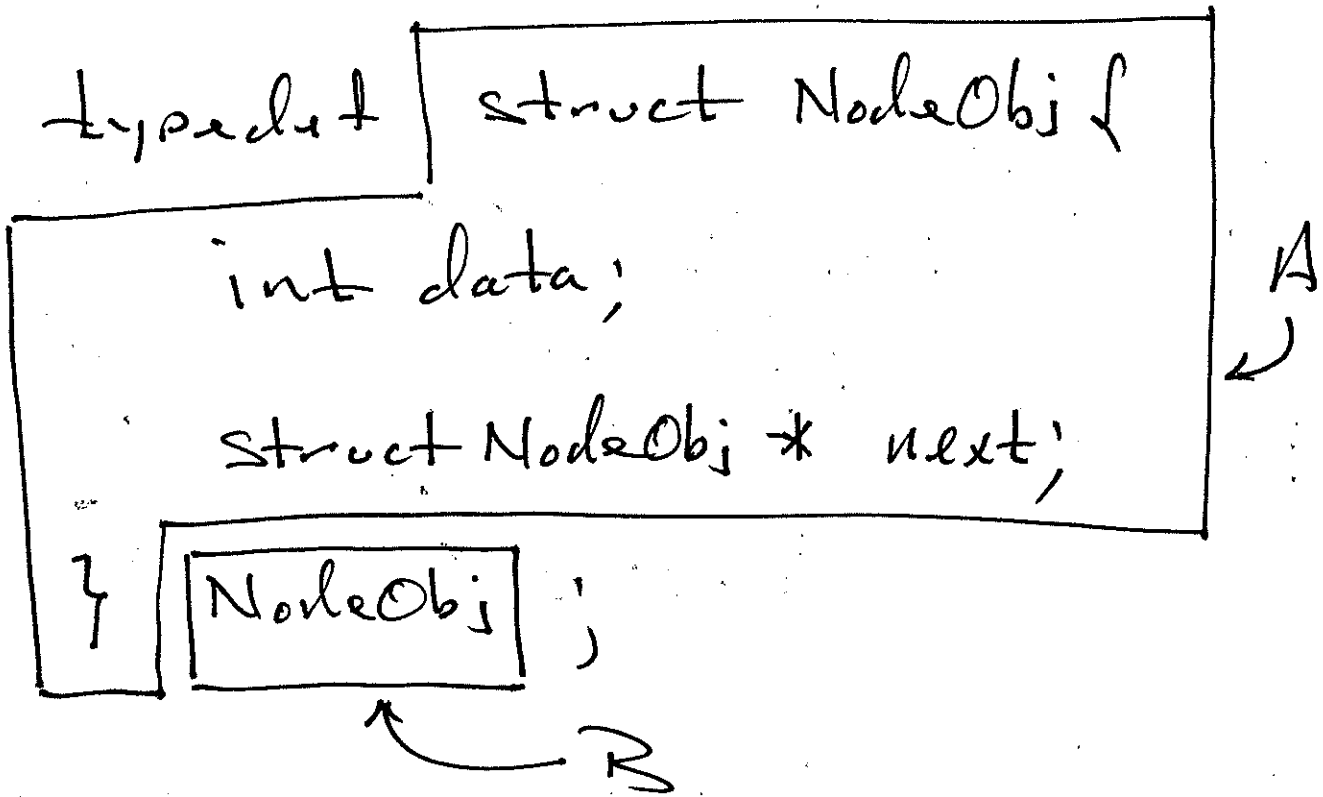 typedef struct NodeObj {
int data;
A
struct NodeObj * next;
} NodeObj ;
B